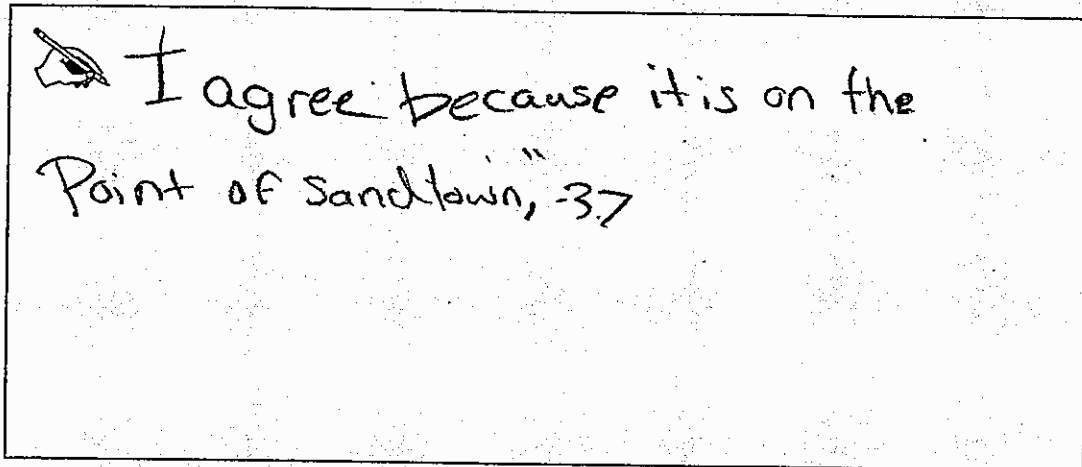 I agree because it is on the
Point of Sandtown," -3.7